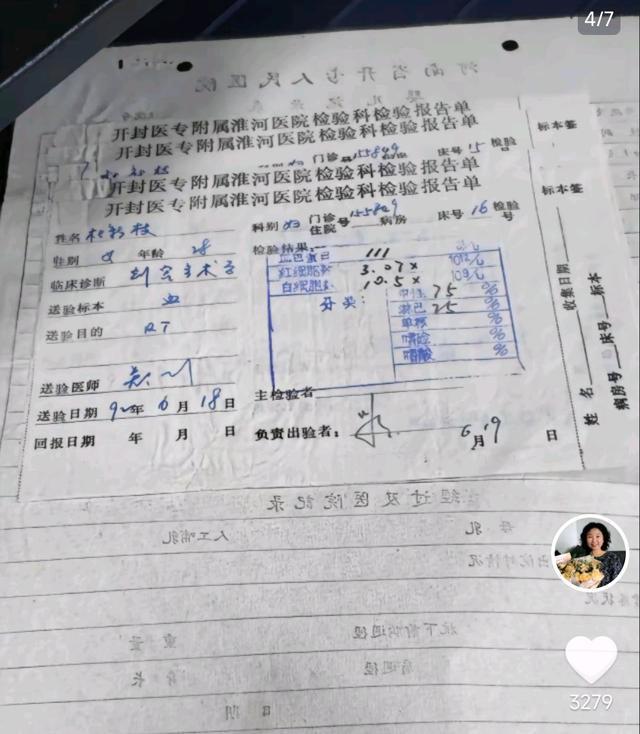 4/7
开封医专附属淮河医院检验科检验报告单
开封医专附属淮河医院检验科检验报告单
门诊 155849 床号 15 检验
标本签
开封医专附属淮河医院检验科检验报告单
开封医专附属淮河医院检验科检验报告单
标本签
姓名 杜新枝 科别 妇 门诊住院号 155849 病房 床号 16 检验号
性别 女 年龄 28 检验结果:
临床诊断 剖宫术
血色素 111
红细胞 3.07×
白细胞 10.5×
分类:
75 %
淋巴 25 %
单核 %
嗜 %
嗜酸 %
送验标本 血
送验目的 RT
送验医师
送验日期 90年 6月 18日
回报日期 年 月 日
主检验者
负责出验者: 6月19日
收集日期
标本
姓名
病房号 床号
河南省开封市人民医院
经过及医院记录
母乳 人工哺乳
出院时情况
重量
肩通径
身长
日期
3279